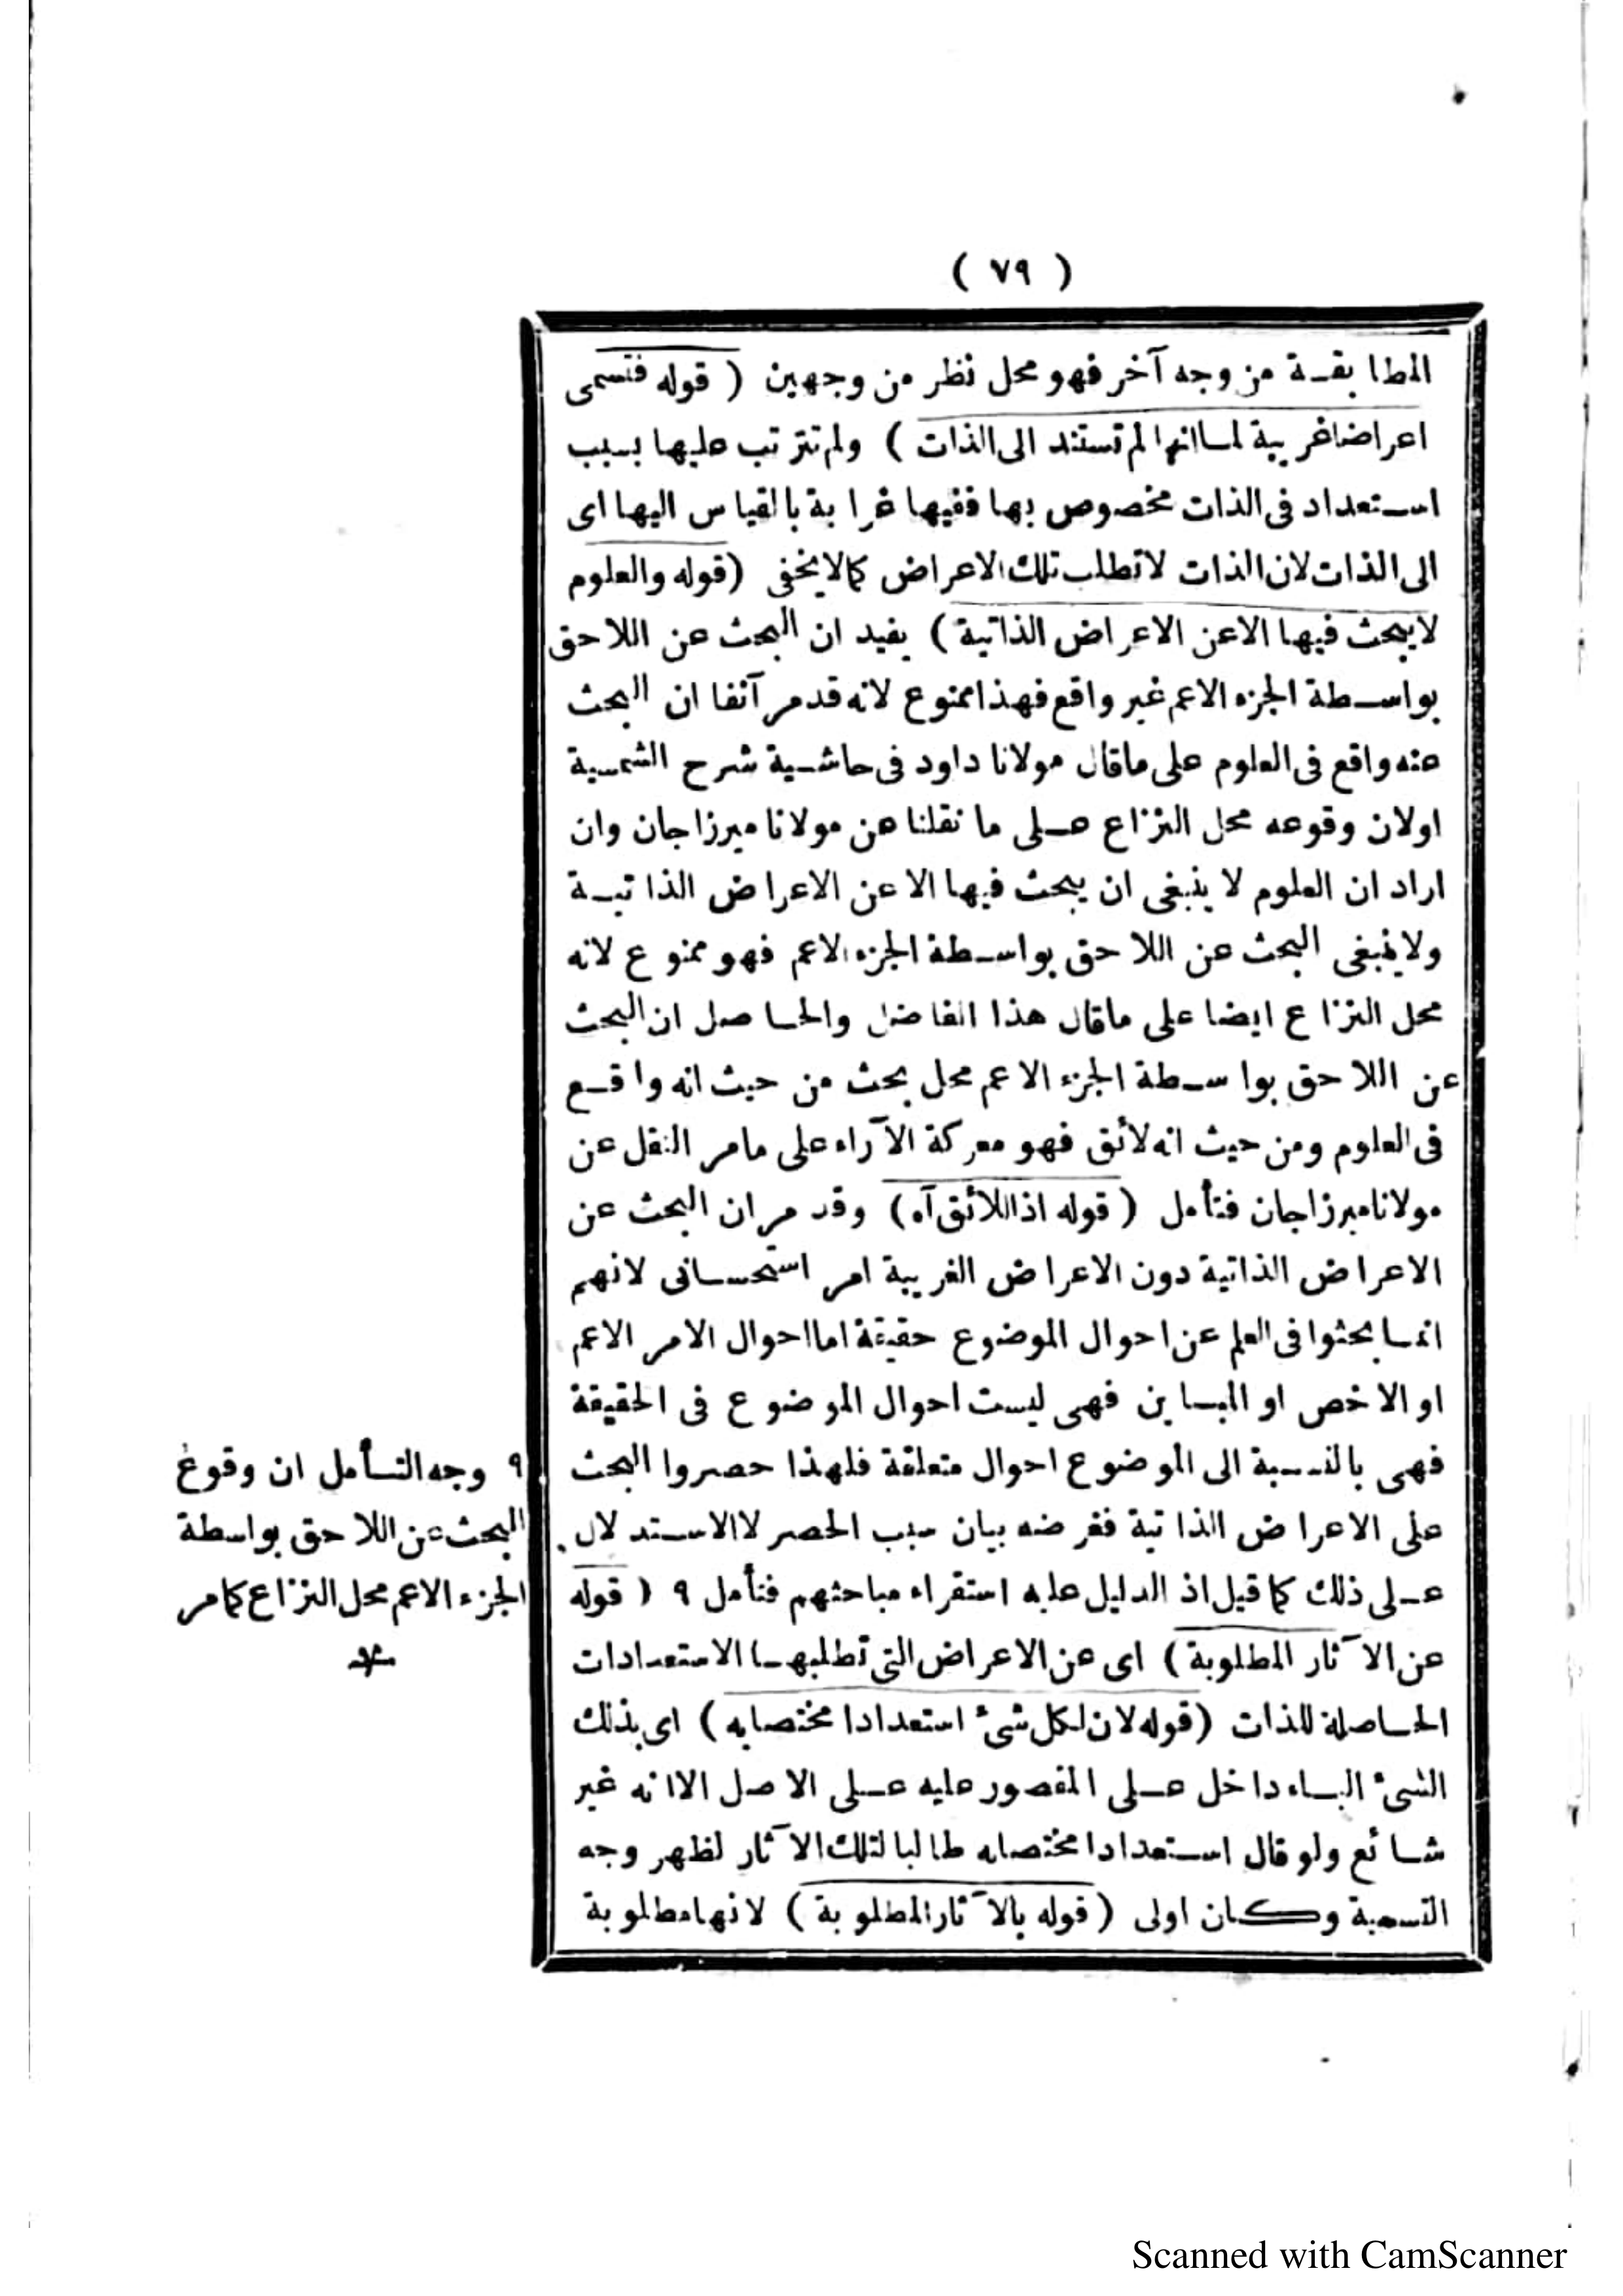 ( ٧٩ )
المطابقة من وجه آخر فهو محل نظر من وجهين ( قوله فتسمى
اعراضا غريبة لما انها لم تستند الى الذات ) ولم تترتب عليها بسبب
استعداد فى الذات مخصوص بها ففيها غرابة بالقياس اليها اى
الى الذات لان الذات لا تطلب تلك الاعراض كما لا يخفى ( قوله والعلوم
لا يبحث فيها الا عن الاعراض الذاتية ) يفيد ان البحث عن اللاحق
بواسطة الجزء الاعم غير واقع فهذا ممنوع لانه قد مر آنفا ان البحث
عنه واقع فى العلوم على ما قال مولانا داود فى حاشية شرح الشمسية
اولان وقوعه محل النزاع على ما نقلنا عن مولانا ميرزاجان وان
اراد ان العلوم لا ينبغى ان يبحث فيها الا عن الاعراض الذاتية
ولا ينبغى البحث عن اللاحق بواسطة الجزء الاعم فهو ممنوع لانه
محل النزاع ايضا على ما قال هذا الفاضل والحاصل ان البحث
عن اللاحق بواسطة الجزء الاعم محل بحث من حيث انه واقع
فى العلوم ومن حيث انه لائق فهو معركة الآراء على ما مر النقل عن
مولانا ميرزاجان فتأمل ( قوله اذ اللائق آه ) وقد مر ان البحث عن
الاعراض الذاتية دون الاعراض الغريبة امر استحسانى لانهم
انما بحثوا فى العلم عن احوال الموضوع حقيقة اما احوال الامر الاعم
او الاخص او المباين فهى ليست احوال الموضوع فى الحقيقة
فهى بالنسبة الى الموضوع احوال متعلقة فلهذا حصروا البحث
على الاعراض الذاتية فغرضه بيان سبب الحصر لا الاستدلال
على ذلك كما قيل اذ الدليل عليه استقراء مباحثهم فتأمل ٩ ( قوله
عن الآثار المطلوبة ) اى عن الاعراض التى تطلبها الاستعدادات
الحاصلة للذات ( قوله لان لكل شئ استعدادا مختصا به ) اى بذلك
الشئ الباء داخل على المقصور عليه على الاصل الا انه غير
شائع ولو قال استعدادا مختصا به طالبا لتلك الآثار لظهر وجه
التسمية وكان اولى ( قوله بالآثار المطلوبة ) لانها مطلوبة
٩ وجه التأمل ان وقوع
البحث عن اللاحق بواسطة
الجزء الاعم محل النزاع كما مر
منه
Scanned with CamScanner